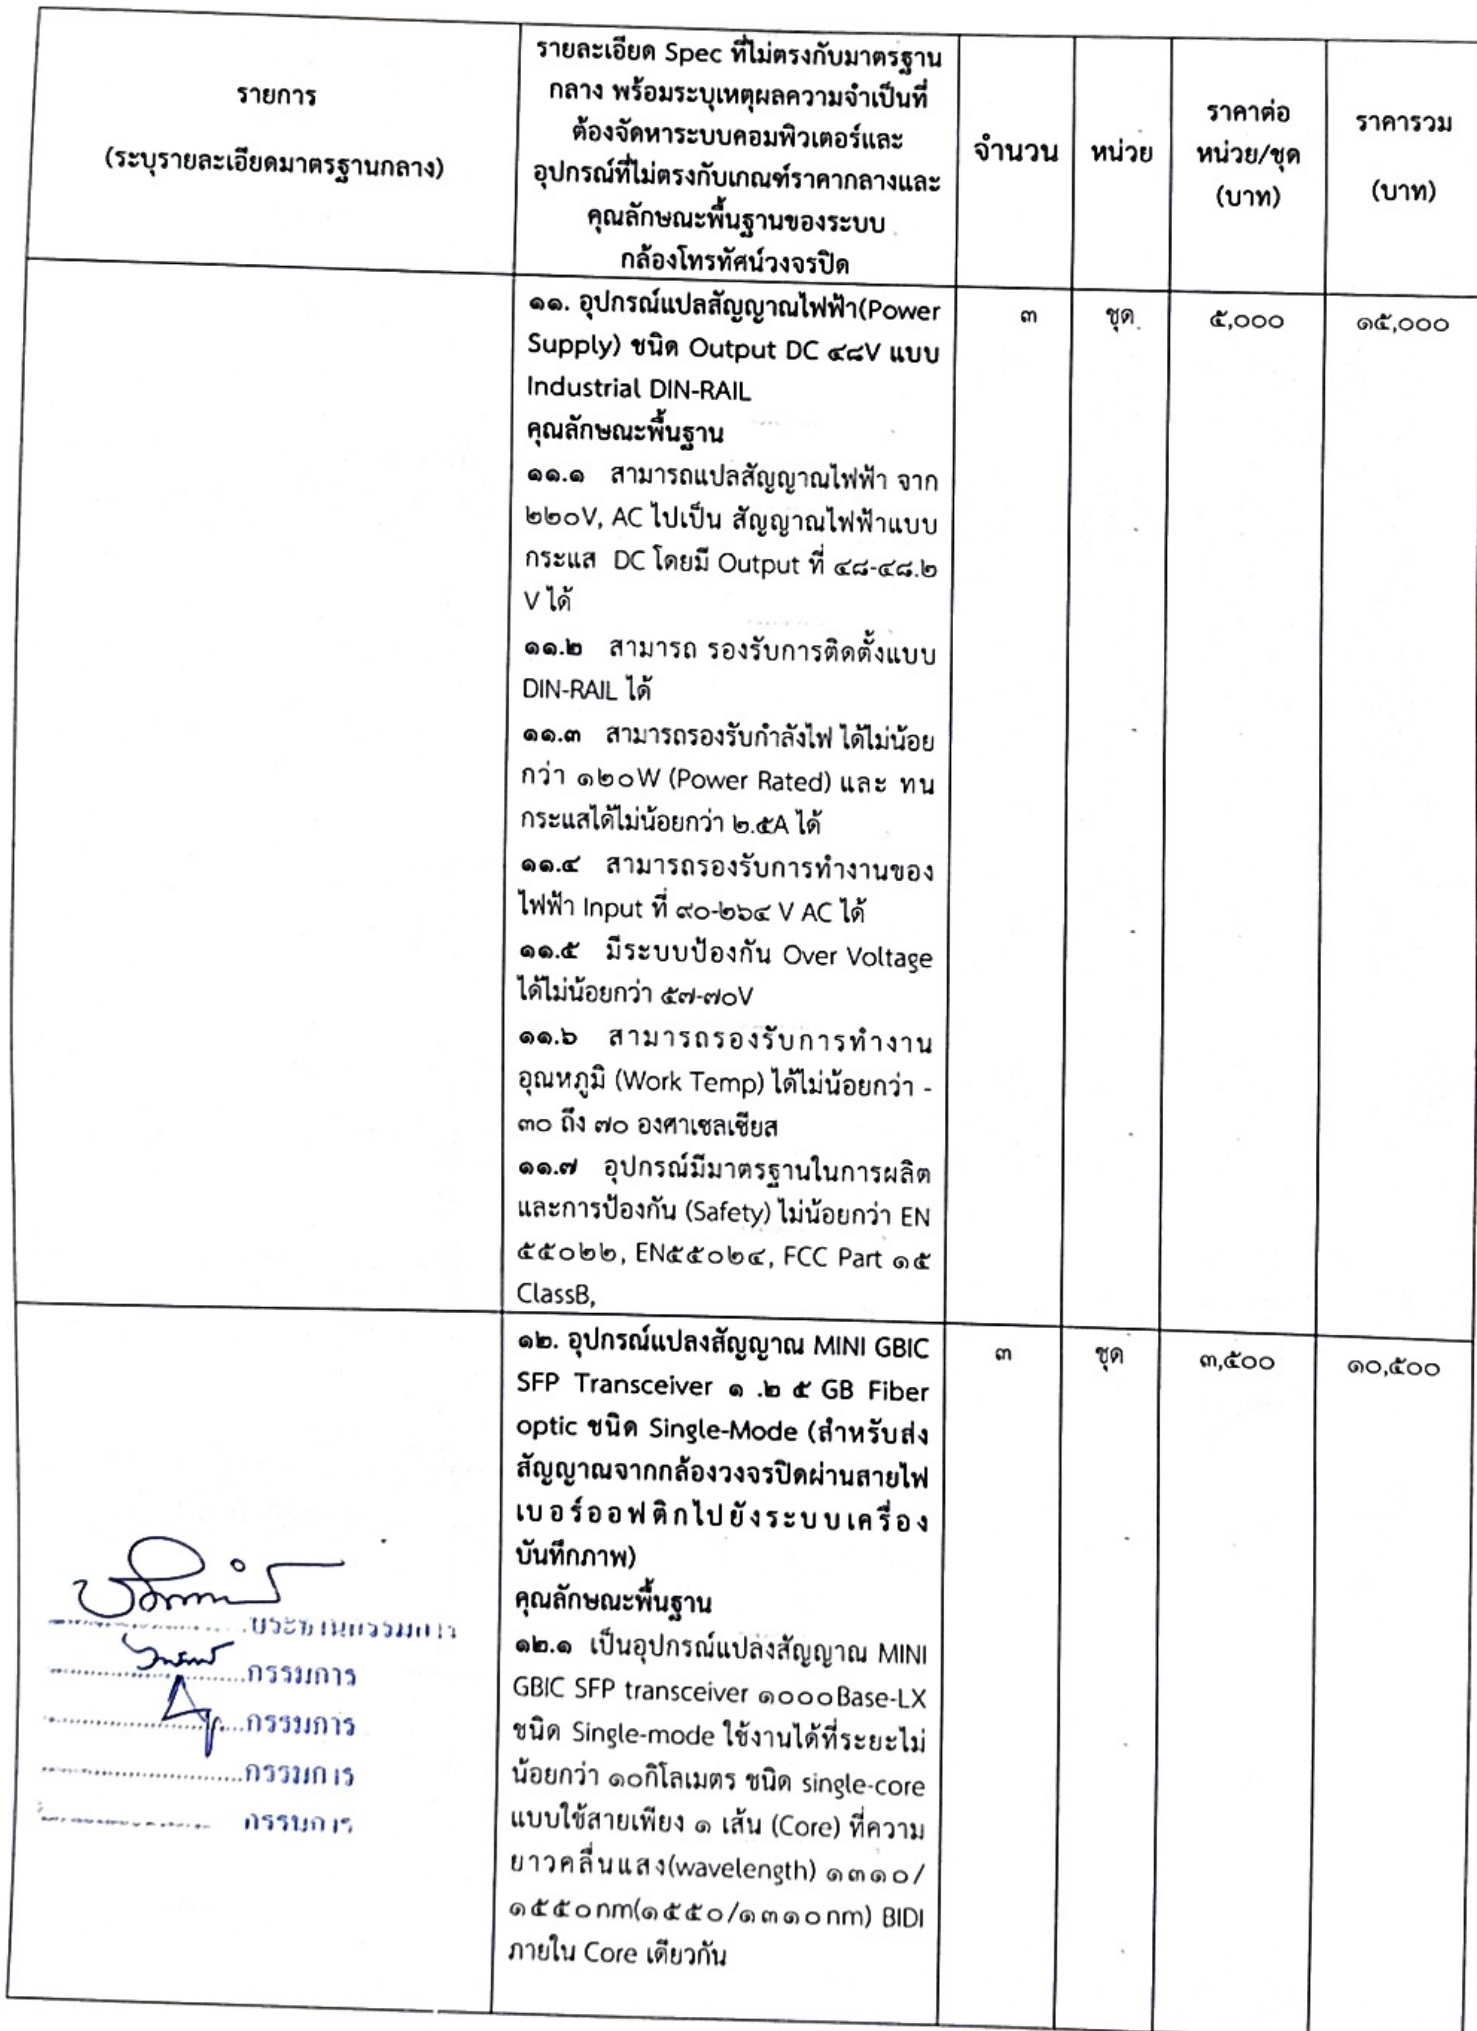 รายการ
(ระบุรายละเอียดมาตรฐานกลาง)
รายละเอียด Spec ที่ไม่ตรงกับมาตรฐาน
กลาง พร้อมระบุเหตุผลความจำเป็นที่
ต้องจัดหาระบบคอมพิวเตอร์และ
อุปกรณ์ที่ไม่ตรงกับเกณฑ์ราคากลางและ
คุณลักษณะพื้นฐานของระบบ
กล้องโทรทัศน์วงจรปิด
จำนวน
หน่วย
ราคาต่อ
หน่วย/ชุด
(บาท)
ราคารวม
(บาท)
๑๑. อุปกรณ์แปลสัญญาณไฟฟ้า(Power
Supply) ชนิด Output DC ๔๘V แบบ
Industrial DIN-RAIL
คุณลักษณะพื้นฐาน
๑๑.๑ สามารถแปลสัญญาณไฟฟ้า จาก
๒๒๐V, AC ไปเป็น สัญญาณไฟฟ้าแบบ
กระแส DC โดยมี Output ที่ ๔๘-๔๘.๒
V ได้
๑๑.๒ สามารถ รองรับการติดตั้งแบบ
DIN-RAIL ได้
๑๑.๓ สามารถรองรับกำลังไฟ ได้ไม่น้อย
กว่า ๑๒๐W (Power Rated) และ ทน
กระแสได้ไม่น้อยกว่า ๒.๕A ได้
๑๑.๔ สามารถรองรับการทำงานของ
ไฟฟ้า Input ที่ ๙๐-๒๖๔ V AC ได้
๑๑.๕ มีระบบป้องกัน Over Voltage
ได้ไม่น้อยกว่า ๕๗-๗๐V
๑๑.๖ สามารถรองรับการทำงาน
อุณหภูมิ (Work Temp) ได้ไม่น้อยกว่า -
๓๐ ถึง ๗๐ องศาเซลเซียส
๑๑.๗ อุปกรณ์มีมาตรฐานในการผลิต
และการป้องกัน (Safety) ไม่น้อยกว่า EN
๕๕๐๒๒, EN๕๕๐๒๔, FCC Part ๑๕
ClassB,
๓
ชุด
๕,๐๐๐
๑๕,๐๐๐
๑๒. อุปกรณ์แปลงสัญญาณ MINI GBIC
SFP Transceiver ๑ .๒ ๕ GB Fiber
optic ชนิด Single-Mode (สำหรับส่ง
สัญญาณจากกล้องวงจรปิดผ่านสายไฟ
เบอร์ออฟติกไปยังระบบเครื่อง
บันทึกภาพ)
คุณลักษณะพื้นฐาน
๑๒.๑ เป็นอุปกรณ์แปลงสัญญาณ MINI
GBIC SFP transceiver ๑๐๐๐Base-LX
ชนิด Single-mode ใช้งานได้ที่ระยะไม่
น้อยกว่า ๑๐กิโลเมตร ชนิด single-core
แบบใช้สายเพียง ๑ เส้น (Core) ที่ความ
ยาวคลื่นแสง(wavelength) ๑๓๑๐/
๑๕๕๐nm(๑๕๕๐/๑๓๑๐nm) BIDI
ภายใน Core เดียวกัน
๓
ชุด
๓,๕๐๐
๑๐,๕๐๐
ประธานกรรมการ
กรรมการ
กรรมการ
กรรมการ
กรรมการ